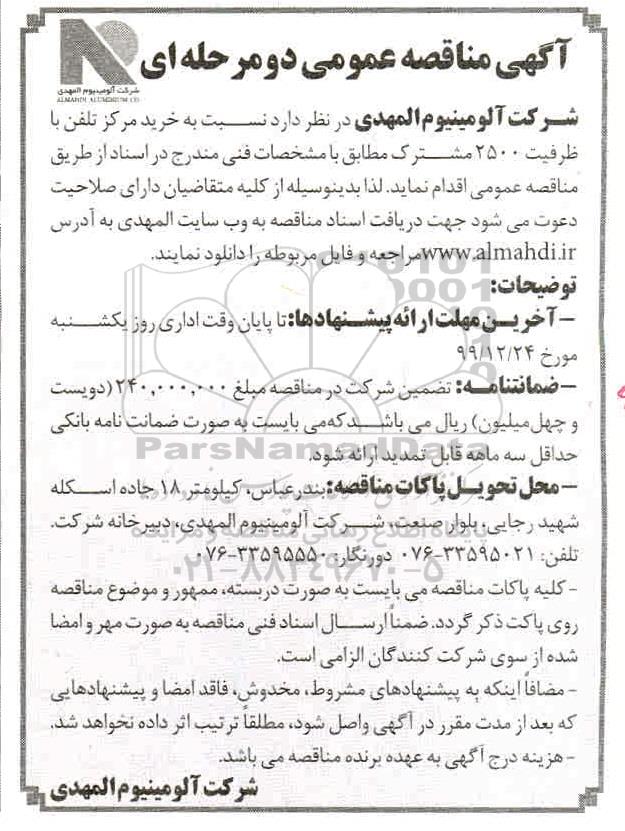 آگهی مناقصه عمومی دو مرحله ای
شرکت آلومینیوم المهدی
ALMAHDI ALUMINIUM CO.
شرکت آلومینیوم المهدی در نظر دارد نسبت به خرید مرکز تلفن با
ظرفیت ۲۵۰۰ مشترک مطابق با مشخصات فنی مندرج در اسناد از طریق
مناقصه عمومی اقدام نماید. لذا بدینوسیله از کلیه متقاضیان دارای صلاحیت
دعوت می شود جهت دریافت اسناد مناقصه به وب سایت المهدی به آدرس
www.almahdi.ir مراجعه و فایل مربوطه را دانلود نمایند.
توضیحات:
- آخرین مهلت ارائه پیشنهادها: تا پایان وقت اداری روز یکشنبه
مورخ ۹۹/۱۲/۲۴
- ضمانتنامه: تضمین شرکت در مناقصه مبلغ ۲۴۰,۰۰۰,۰۰۰ (دویست
و چهل میلیون) ریال می باشد که می بایست به صورت ضمانت نامه بانکی
حداقل سه ماهه قابل تمدید ارائه شود.
ParsNamadData
- محل تحویل پاکات مناقصه: بندرعباس، کیلومتر ۱۸ جاده اسکله
شهید رجایی، بلوار صنعت، شرکت آلومینیوم المهدی، دبیرخانه شرکت.
پایگاه اطلاع رسانی مناقصه و مزایده
تلفن: ۳۳۵۹۵۰۲۱-۰۷۶ دورنگار: ۳۳۵۹۵۵۵۰-۰۷۶
۰۲۱-۸۸۳۴۹۶۷۰-۵
- کلیه پاکات مناقصه می بایست به صورت دربسته، ممهور و موضوع مناقصه
روی پاکت ذکر گردد. ضمناً ارسال اسناد فنی مناقصه به صورت مهر و امضا
شده از سوی شرکت کنندگان الزامی است.
- مضافاً اینکه به پیشنهادهای مشروط، مخدوش، فاقد امضا و پیشنهادهایی
که بعد از مدت مقرر در آگهی واصل شود، مطلقاً ترتیب اثر داده نخواهد شد.
- هزینه درج آگهی به عهده برنده مناقصه می باشد.
شرکت آلومینیوم المهدی